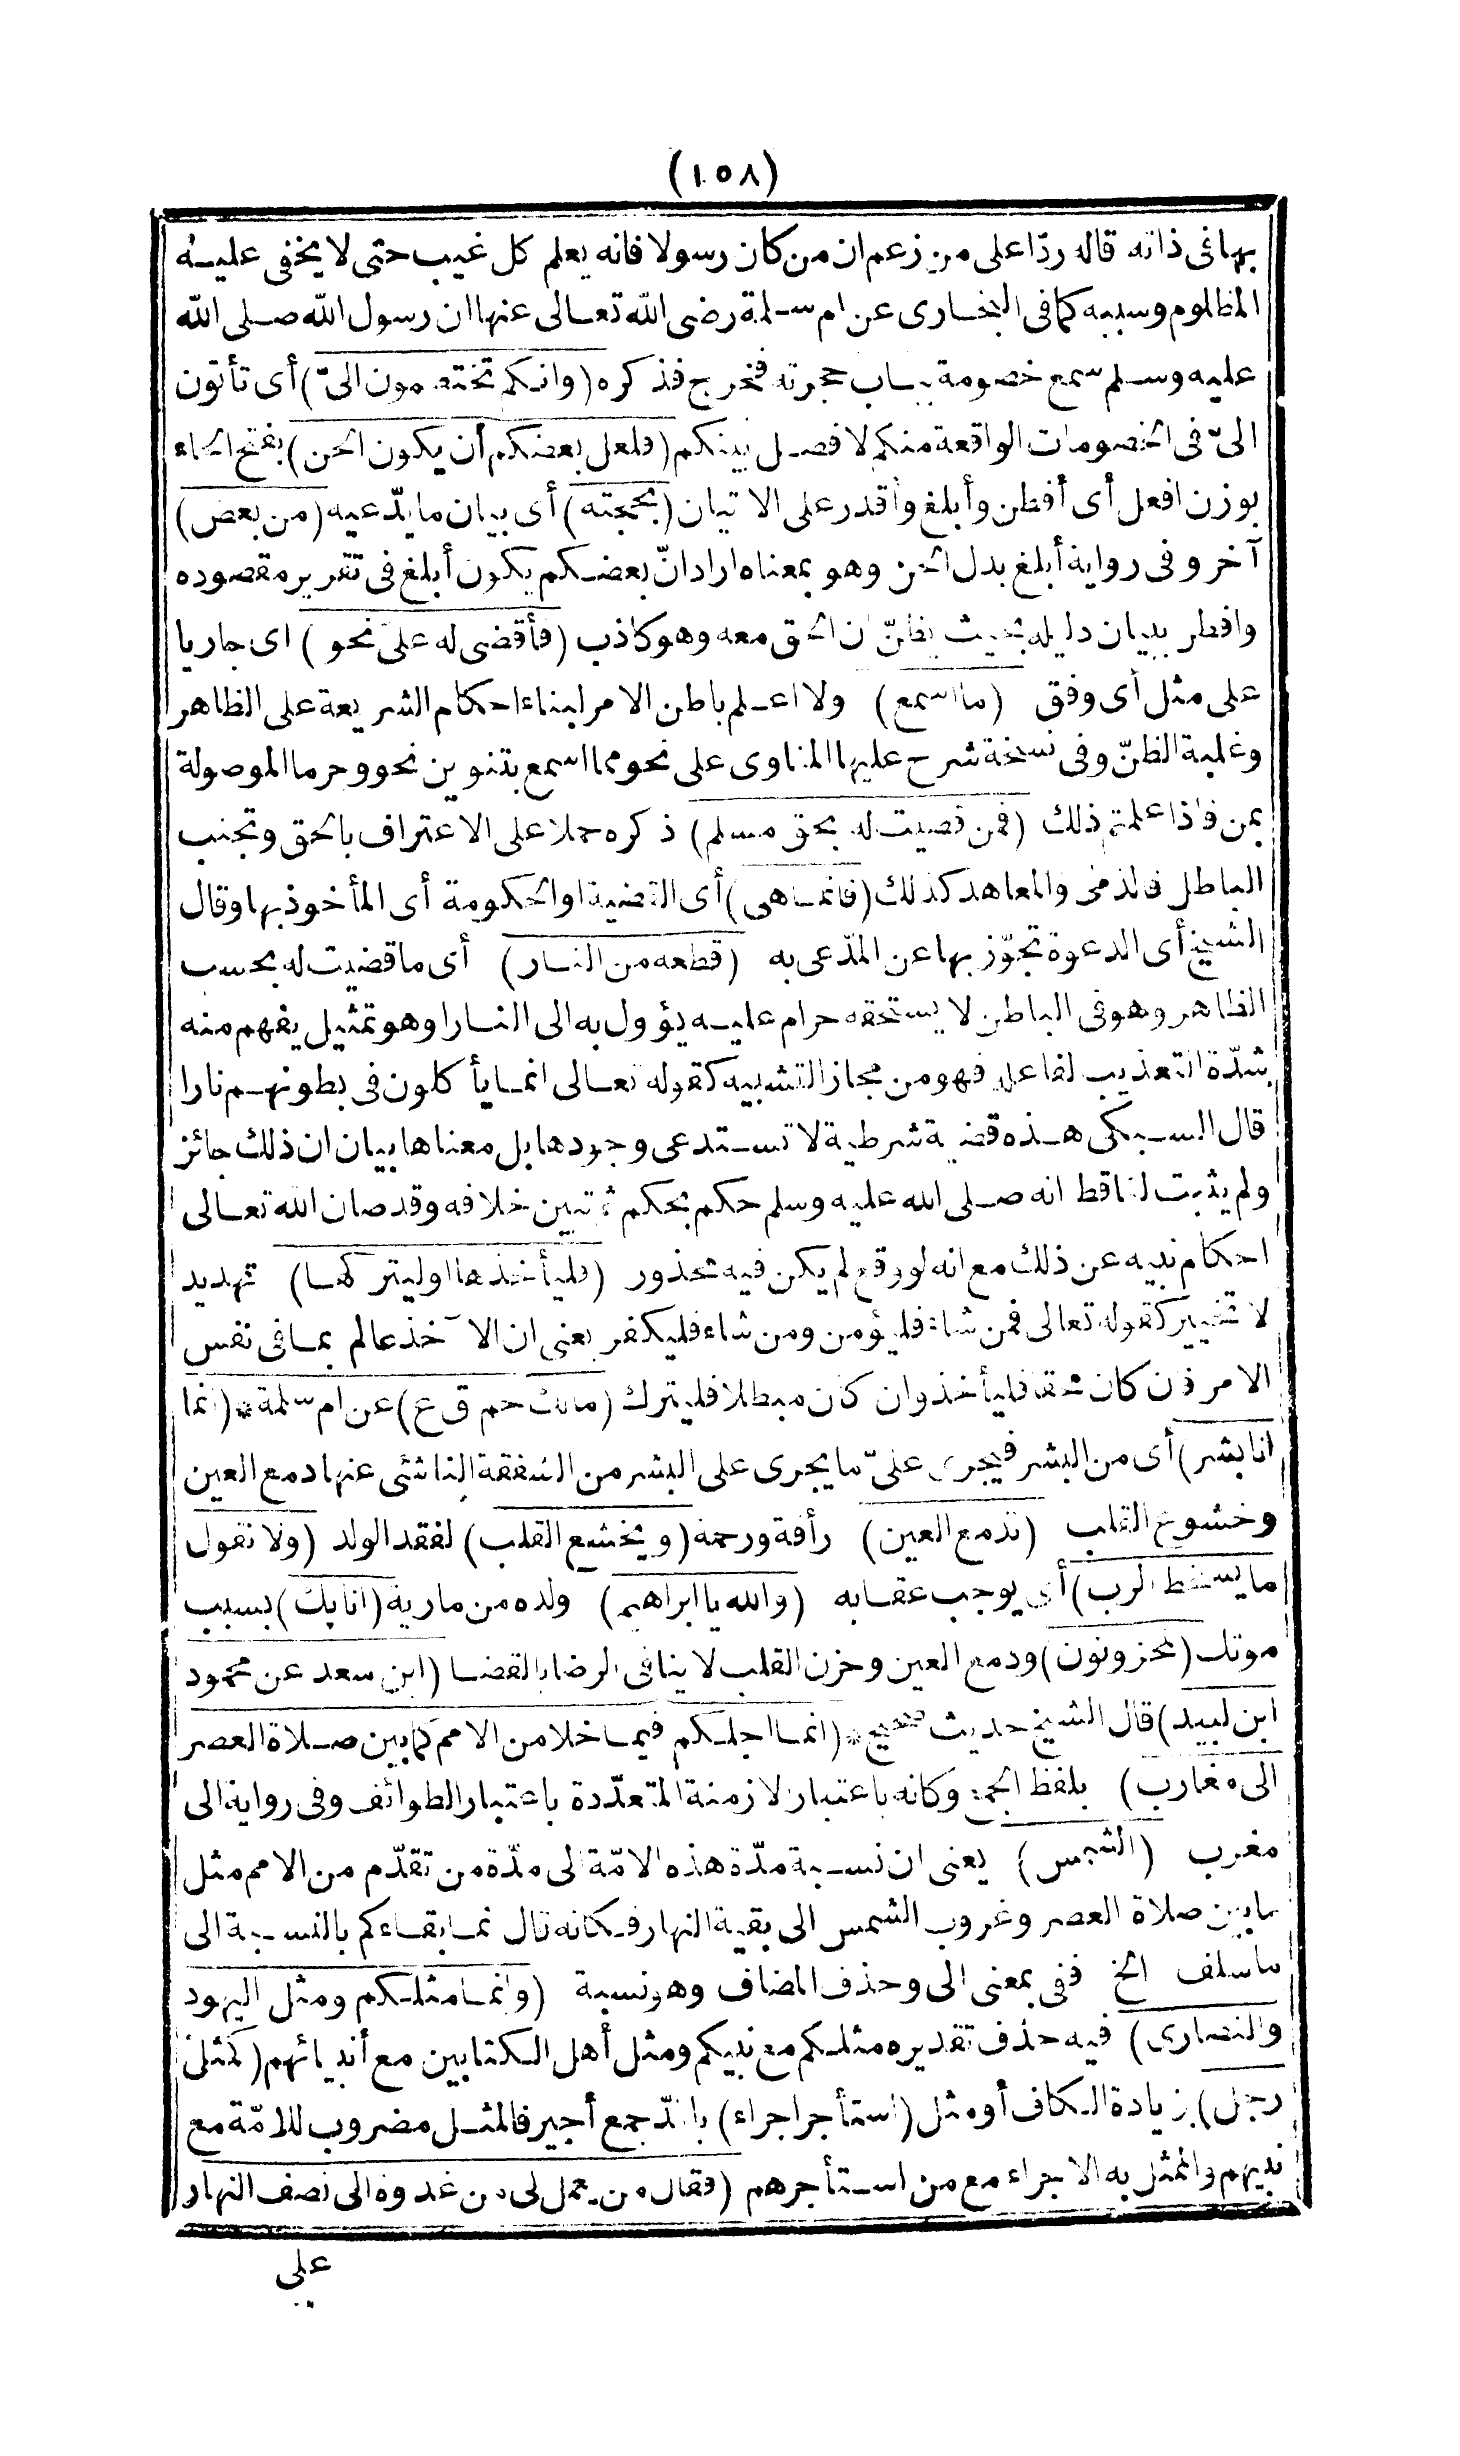 (١٥٨)
بها في ذاته قاله ردّا على من زعم ان من كان رسولا فانه يعلم كل غيب حتى لا يخفى عليه
المظلوم وسببه كما في البخارى عن ام سلمة رضى الله تعالى عنها ان رسول الله صلى الله
عليه وسلم سمع خصومة بباب حجرته فخرج فذكره (وانكم تختصمون الىّ) أى تأتون
الىّ فى الخصومات الواقعة منكم لافصل بينكم (فلعل بعضكم أن يكون الحن) بفتح الحاء
بوزن افعل أى أفطن وأبلغ وأقدر على الاتيان (بحجته) أى بيان ما يدّعيه (من بعض)
آخر وفى رواية أبلغ بدل الحن وهو بمعناه اراد انّ بعضكم يكون أبلغ فى تقرير مقصوده
وافطن ببيان دليله بحيث يظنّ ان الحق معه وهو كاذب (فأقضى له على نحو) اى جاريا
على مثل أى وفق (ما اسمع) ولا اعلم باطن الامر لبناء احكام الشريعة على الظاهر
وغلبة الظنّ وفى نسخة شرح عليها المناوى على نحو مما اسمع بتنوين نحو وجر ما الموصولة
بمن فاذا علمتم ذلك (فمن قضيت له بحق مسلم) ذكره حملا على الاعتراف بالحق وتجنب
الباطل فالذمى والمعاهد كذلك (فانما هى) أى القضية او الحكومة أى المأخوذ بها وقال
الشيخ أى الدعوة تجوّز بها عن المدّعى به (قطعه من النار) أى ما قضيت له بحسب
الظاهر وهو فى الباطن لا يستحقه حرام عليه يؤول به الى النار او هو تمثيل يفهم منه
شدّة التعذيب لفاعله فهو من مجاز التشبيه كقوله تعالى انما يأكلون فى بطونهم نارا
قال السبكى هذه قضية شرطية لا تستدعى وجودها بل معناها بيان ان ذلك جائز
ولم يثبت لنا قط انه صلى الله عليه وسلم حكم بحكم ثم تبين خلافه وقد صان الله تعالى
احكام نبيه عن ذلك مع انه لو وقع لم يكن فيه محذور (فليأخذها او ليتركها) تهديد
لا تخيير كقوله تعالى فمن شاء فليؤمن ومن شاء فليكفر يعنى ان الآخذ عالم بما فى نفس
الامر فان كان محقا فليأخذ وان كان مبطلا فليترك (مالك حم ق ع) عن ام سلمة * (انما
انا بشر) أى من البشر فيجرى علىّ ما يجرى على البشر من الشفقة الناشئى عنها دمع العين
وخشوع القلب (تدمع العين) رأفة ورحمة (ويخشع القلب) لفقد الولد (ولا نقول
ما يسخط الرب) أى يوجب عقابه (والله يا ابراهيم) ولده من مارية (انا بك) بسبب
موتك (محزونون) ودمع العين وحزن القلب لا ينافى الرضا بالقضا (ابن سعد عن محمود
ابن لبيد) قال الشيخ حديث صحيح * (انما اجلكم فيما خلا من الامم كما بين صلاة العصر
الى مغارب) بلفظ الجمع وكانه باعتبار الازمنة المتعدّدة باعتبار الطوائف وفى رواية الى
مغرب (الشمس) يعنى ان نسبة مدّة هذه الامّة الى مدّة من تقدّم من الامم مثل
ما بين صلاة العصر وغروب الشمس الى بقية النهار فكانه قال انما بقاءكم بالنسبة الى
ما سلف الخ ففى بمعنى الى وحذف المضاف وهو نسبة (وانما مثلكم ومثل اليهود
والنصارى) فيه حذف تقديره مثلكم مع نبيكم ومثل أهل الكتابين مع أنبيائهم (كمثل
رجل) بزيادة الكاف أو مثل (استأجر اجراء) بالمدّ جمع أجير فالمثل مضروب للامّة مع
نبيهم والممثل به الاجراء مع من استأجرهم (فقال من يعمل لى من غدوه الى نصف النهار
على